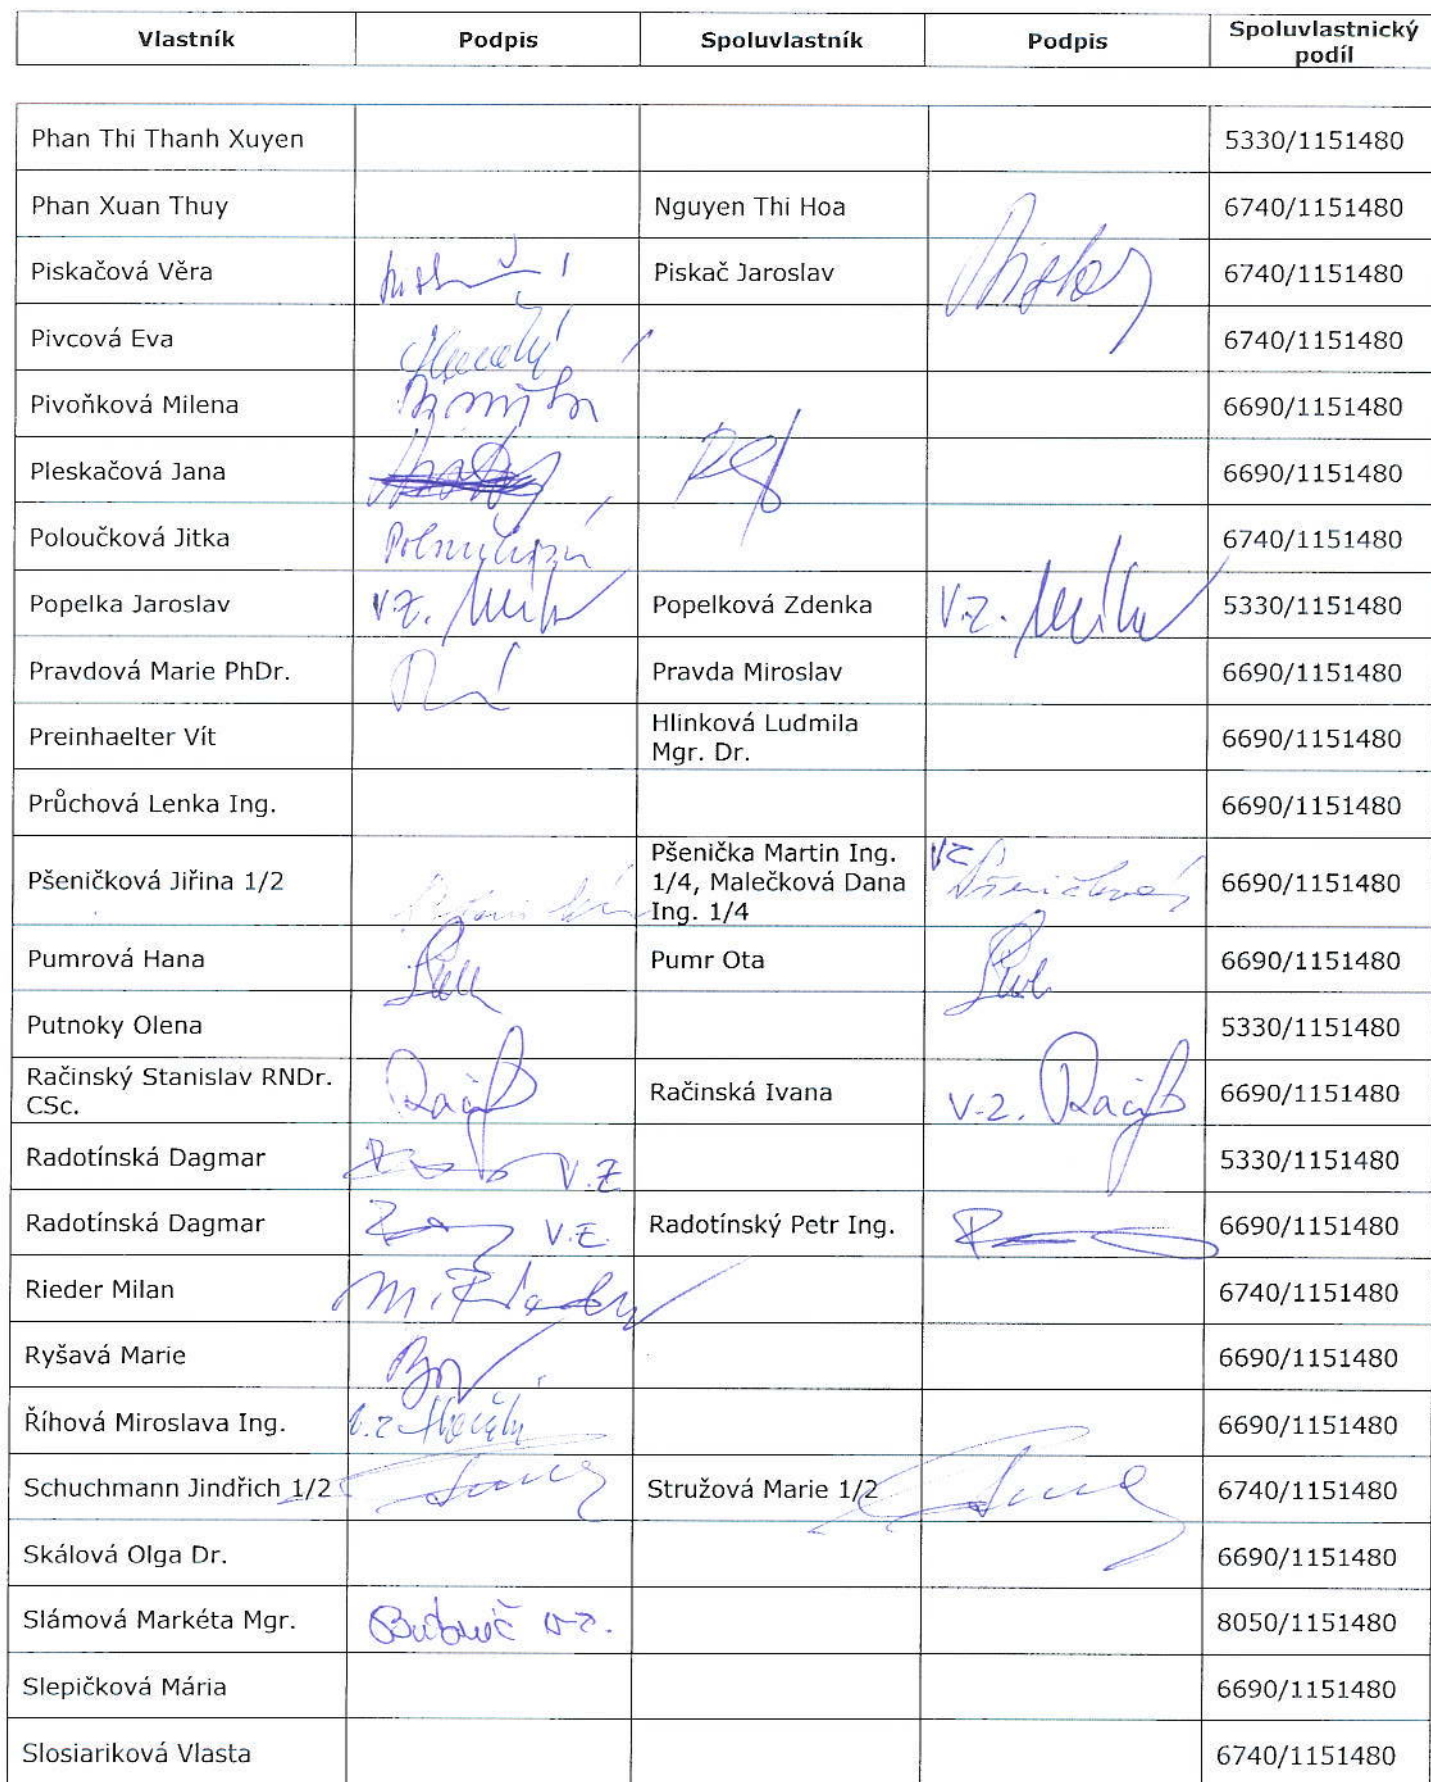 Vlastník Podpis Spoluvlastník Podpis Spoluvlastnický
podíl
Phan Thi Thanh Xuyen 5330/1151480
Phan Xuan Thuy Nguyen Thi Hoa 6740/1151480
Piskačová Věra Piskač Jaroslav 6740/1151480
Pivcová Eva 6740/1151480
Pivoňková Milena 6690/1151480
Pleskačová Jana 6690/1151480
Poloučková Jitka 6740/1151480
Popelka Jaroslav v.z. Popelková Zdenka v.z. 5330/1151480
Pravdová Marie PhDr. Pravda Miroslav 6690/1151480
Preinhaelter Vít Hlinková Ludmila
Mgr. Dr. 6690/1151480
Průchová Lenka Ing. 6690/1151480
Pšeničková Jiřina 1/2 Pšenička Martin Ing.
1/4, Malečková Dana
Ing. 1/4 vz Pšeničková 6690/1151480
Pumrová Hana Pumr Ota 6690/1151480
Putnoky Olena 5330/1151480
Račinský Stanislav RNDr.
CSc. Račinská Ivana v.z. 6690/1151480
Radotínská Dagmar v.z 5330/1151480
Radotínská Dagmar v.z. Radotínský Petr Ing. 6690/1151480
Rieder Milan 6740/1151480
Ryšavá Marie 6690/1151480
Říhová Miroslava Ing. v.z 6690/1151480
Schuchmann Jindřich 1/2 Stružová Marie 1/2 6740/1151480
Skálová Olga Dr. 6690/1151480
Slámová Markéta Mgr. v.z. 8050/1151480
Slepičková Mária 6690/1151480
Slosiariková Vlasta 6740/1151480